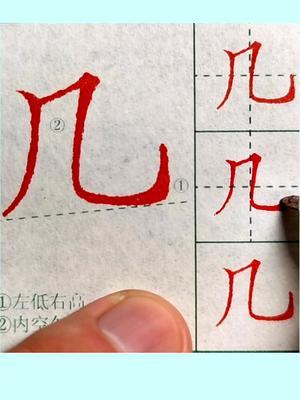 几
几
几
几
②
①
①左低右高
②内空